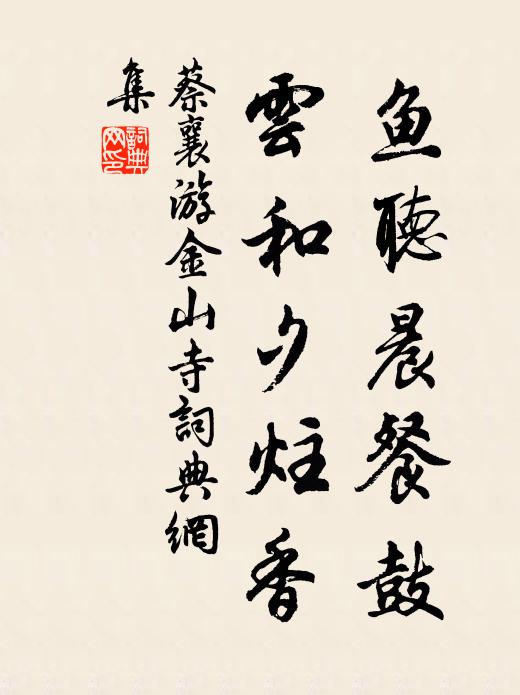 鱼聽晨餐鼓
雲和夕炷香
蔡襄游金山寺詞典網
集
詞典網印